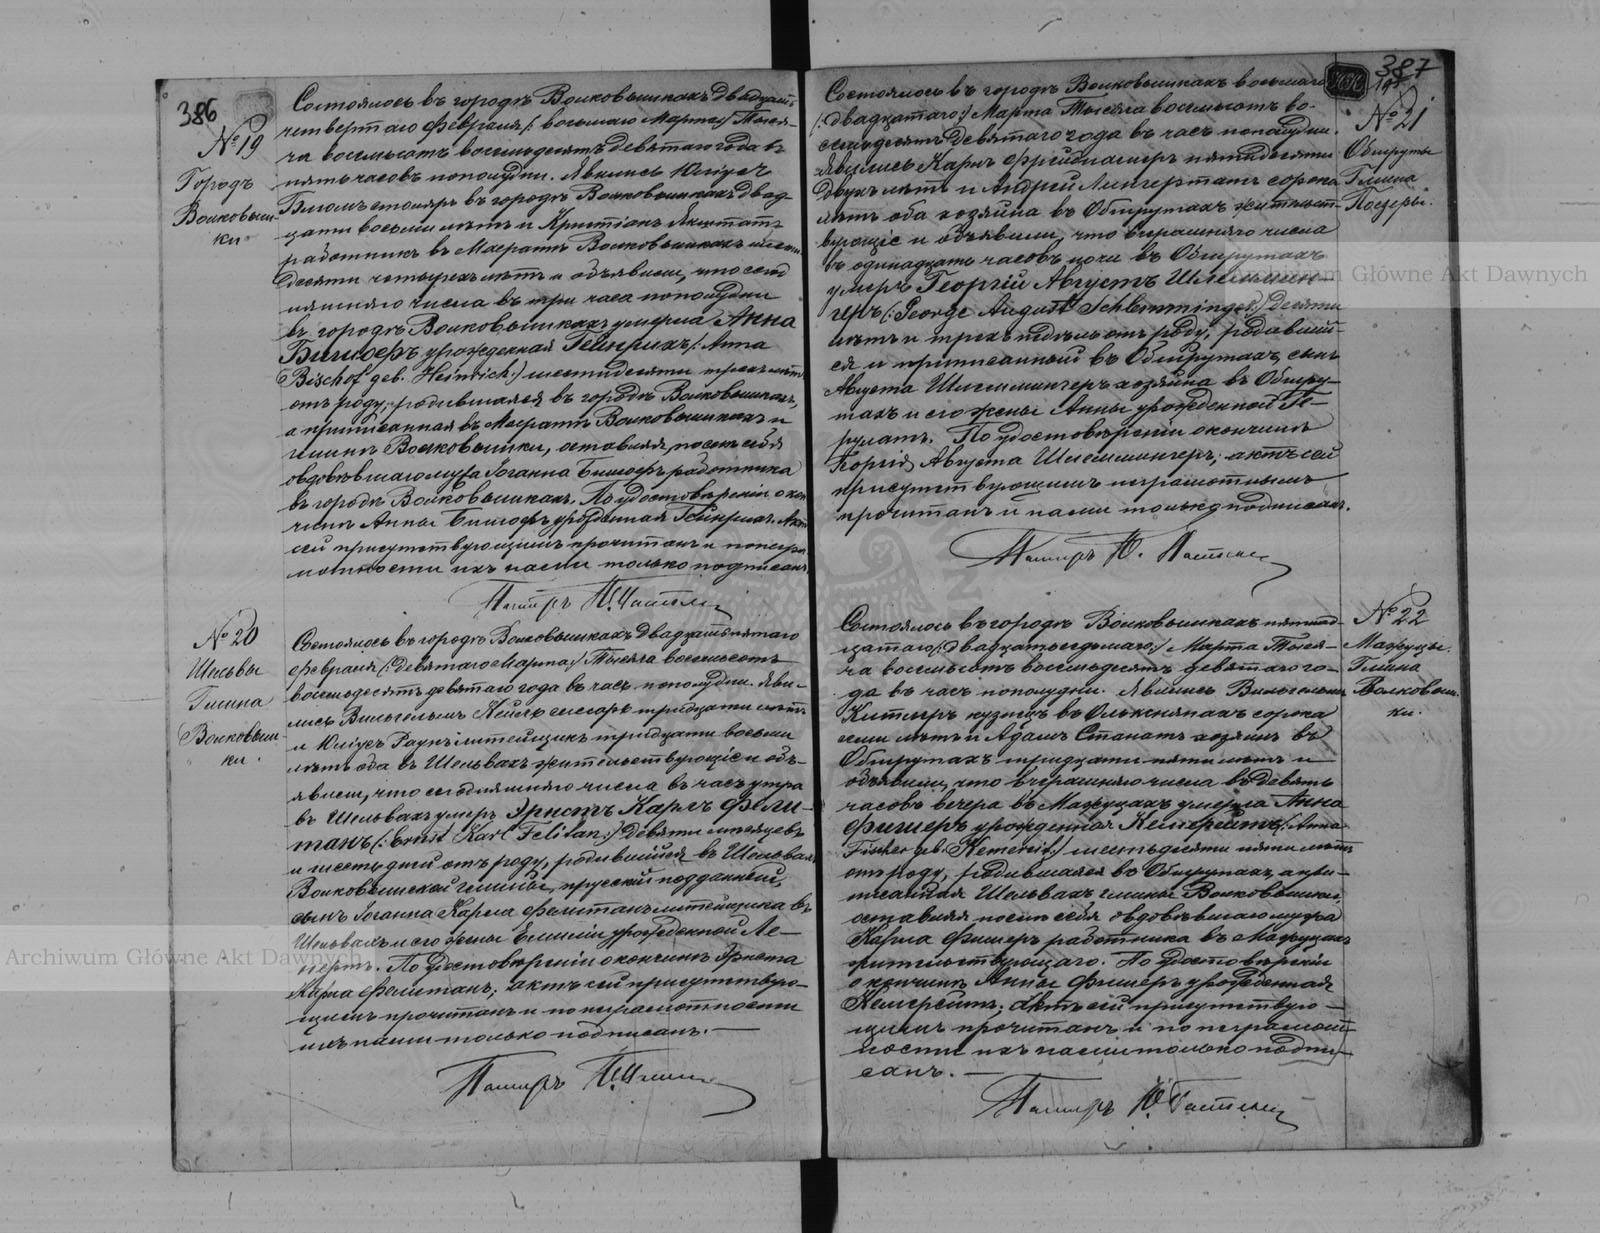 386
№ 19
Городъ
Волковыш-
ки
Состоялось въ городѣ Волковышкахъ двадцать
четвертаго Февраля /: восьмаго Марта :/ Тыся-
ча восемьсотъ восемьдесятъ девятаго года въ
пять часовъ пополудни. Явились Юліусъ
столяръ въ городѣ Волковышкахъ двад-
цати восьми лѣтъ и Христіанъ
работникъ въ Маератѣ Волковышкахъ шести
десяти четырехъ лѣтъ и объявили, что сего
дняшняго числа въ три часа пополудни
въ городѣ Волковышкахъ умерла Анна
Бишофъ урожденная Гейнрихъ /: Anna
Bischof geb. Heinrich :/ шестидесяти трехъ лѣтъ
отъ роду, родившаяся въ городѣ Волковышкахъ,
а приписанная въ Маератѣ Волковышкахъ и
гминѣ Волковышки, оставляя послѣ себя
овдовѣвшаго мужа Іоганна Бишофъ работника
въ городѣ Волковышкахъ. По удостовѣреніи о кон
чинѣ Анны Бишофъ урожденная Гейнрихъ. Актъ
сей присутствующимъ прочитанъ и по негра
мотности ихъ нами только подписанъ
Пасторъ
№ 20
Шельвы
Гмина
Волковыш-
ки.
Состоялось въ городѣ Волковышкахъ двадцать пятаго
Февраля /: девятаго Марта :/ Тысяча восемьсотъ
восемьдесятъ девятаго года въ часъ пополудни. Яви-
лись Вильгельмъ слесарь тридцати лѣтъ
и Юліусъ литейщикъ тридцати восьми
лѣтъ оба въ Шельвахъ жительствующіе и объ-
явили, что сегодняшняго числа въ часъ утра
въ Шельвахъ умеръ Эрнстъ Карлъ Фели-
танъ /: Ernst Karl Felitan :/ девяти мѣсяцевъ
и шесть дней отъ роду, родившійся въ Шельвахъ
Волковышской гмины, прусскій подданный,
сынъ Іоганна Карла Фелитанъ литейщика въ
Шельвахъ и его жены Емиліи урожденной Ле-
пертъ. По удостовѣреніи о кончинѣ Эрнста
Карла Фелитанъ, актъ сей присутствую-
щимъ прочитанъ и по неграмотности
ихъ нами только подписанъ. —
Пасторъ
387
№ 21
Обшруты
Гмина
Состоялось въ городѣ Волковышкахъ восьмаго
/: двадцатаго :/ Марта Тысяча восемьсотъ во-
семьдесятъ девятаго года въ часъ пополудни.
Явились Карлъ пятидесяти
двухъ лѣтъ и Андрей сорока
лѣтъ оба хозяина въ Обшрутахъ жительст-
вующіе и объявили, что вчерашняго числа
въ одинадцать часовъ ночи въ Обшрутахъ
умеръ Георгій Августъ Шлеммин-
геръ /: George August Schlemminger :/ десяти
лѣтъ и трехъ недѣль отъ роду, родивший-
ся и приписанный въ Обшрутахъ, сынъ
Августа Шлеммингеръ хозяина въ Обшру-
тахъ и его жены Анны урожденной Ге-
рулатъ. По удостовѣреніи о кончинѣ
Георгія Августа Шлеммингеръ, актъ сей
присутствующимъ неграмотнымъ
прочитанъ и нами только подписанъ.
Пасторъ
№ 22
Мажуцы.
Гмина
Волковыш-
ки.
Состоялось въ городѣ Волковышкахъ пятнад-
цатаго /: двадцать седьмаго :/ Марта Тыся-
ча восемьсотъ восемьдесятъ девятаго го-
да въ часъ пополудни. Явились Вильгельмъ
кузнецъ въ сорока
семи лѣтъ и Адамъ хозяинъ въ
Обшрутахъ тридцати пяти лѣтъ и
объявили, что вчерашняго числа въ девять
часовъ вечера въ Мажуцахъ умерла Анна
Фишеръ урожденная Кемерейтъ /: Anna
Fischer geb. Kemereit :/ шестьдесяти пяти лѣтъ
отъ роду, родившаяся въ Обшрутахъ, а при-
писанная Шельвахъ гмины Волковышки,
оставляя послѣ себя овдовѣвшаго мужа
Карла Фишеръ работника въ Мажуцахъ
жительствующаго. По удостовѣреніи
о кончинѣ Анны Фишеръ урожденная
Кемерейтъ, Актъ сей присутствую-
щимъ прочитанъ и по неграмот-
ности ихъ нами только подпи-
санъ. —
Пасторъ
Archiwum Główne Akt Dawnych
Archiwum Główne Akt Dawnych